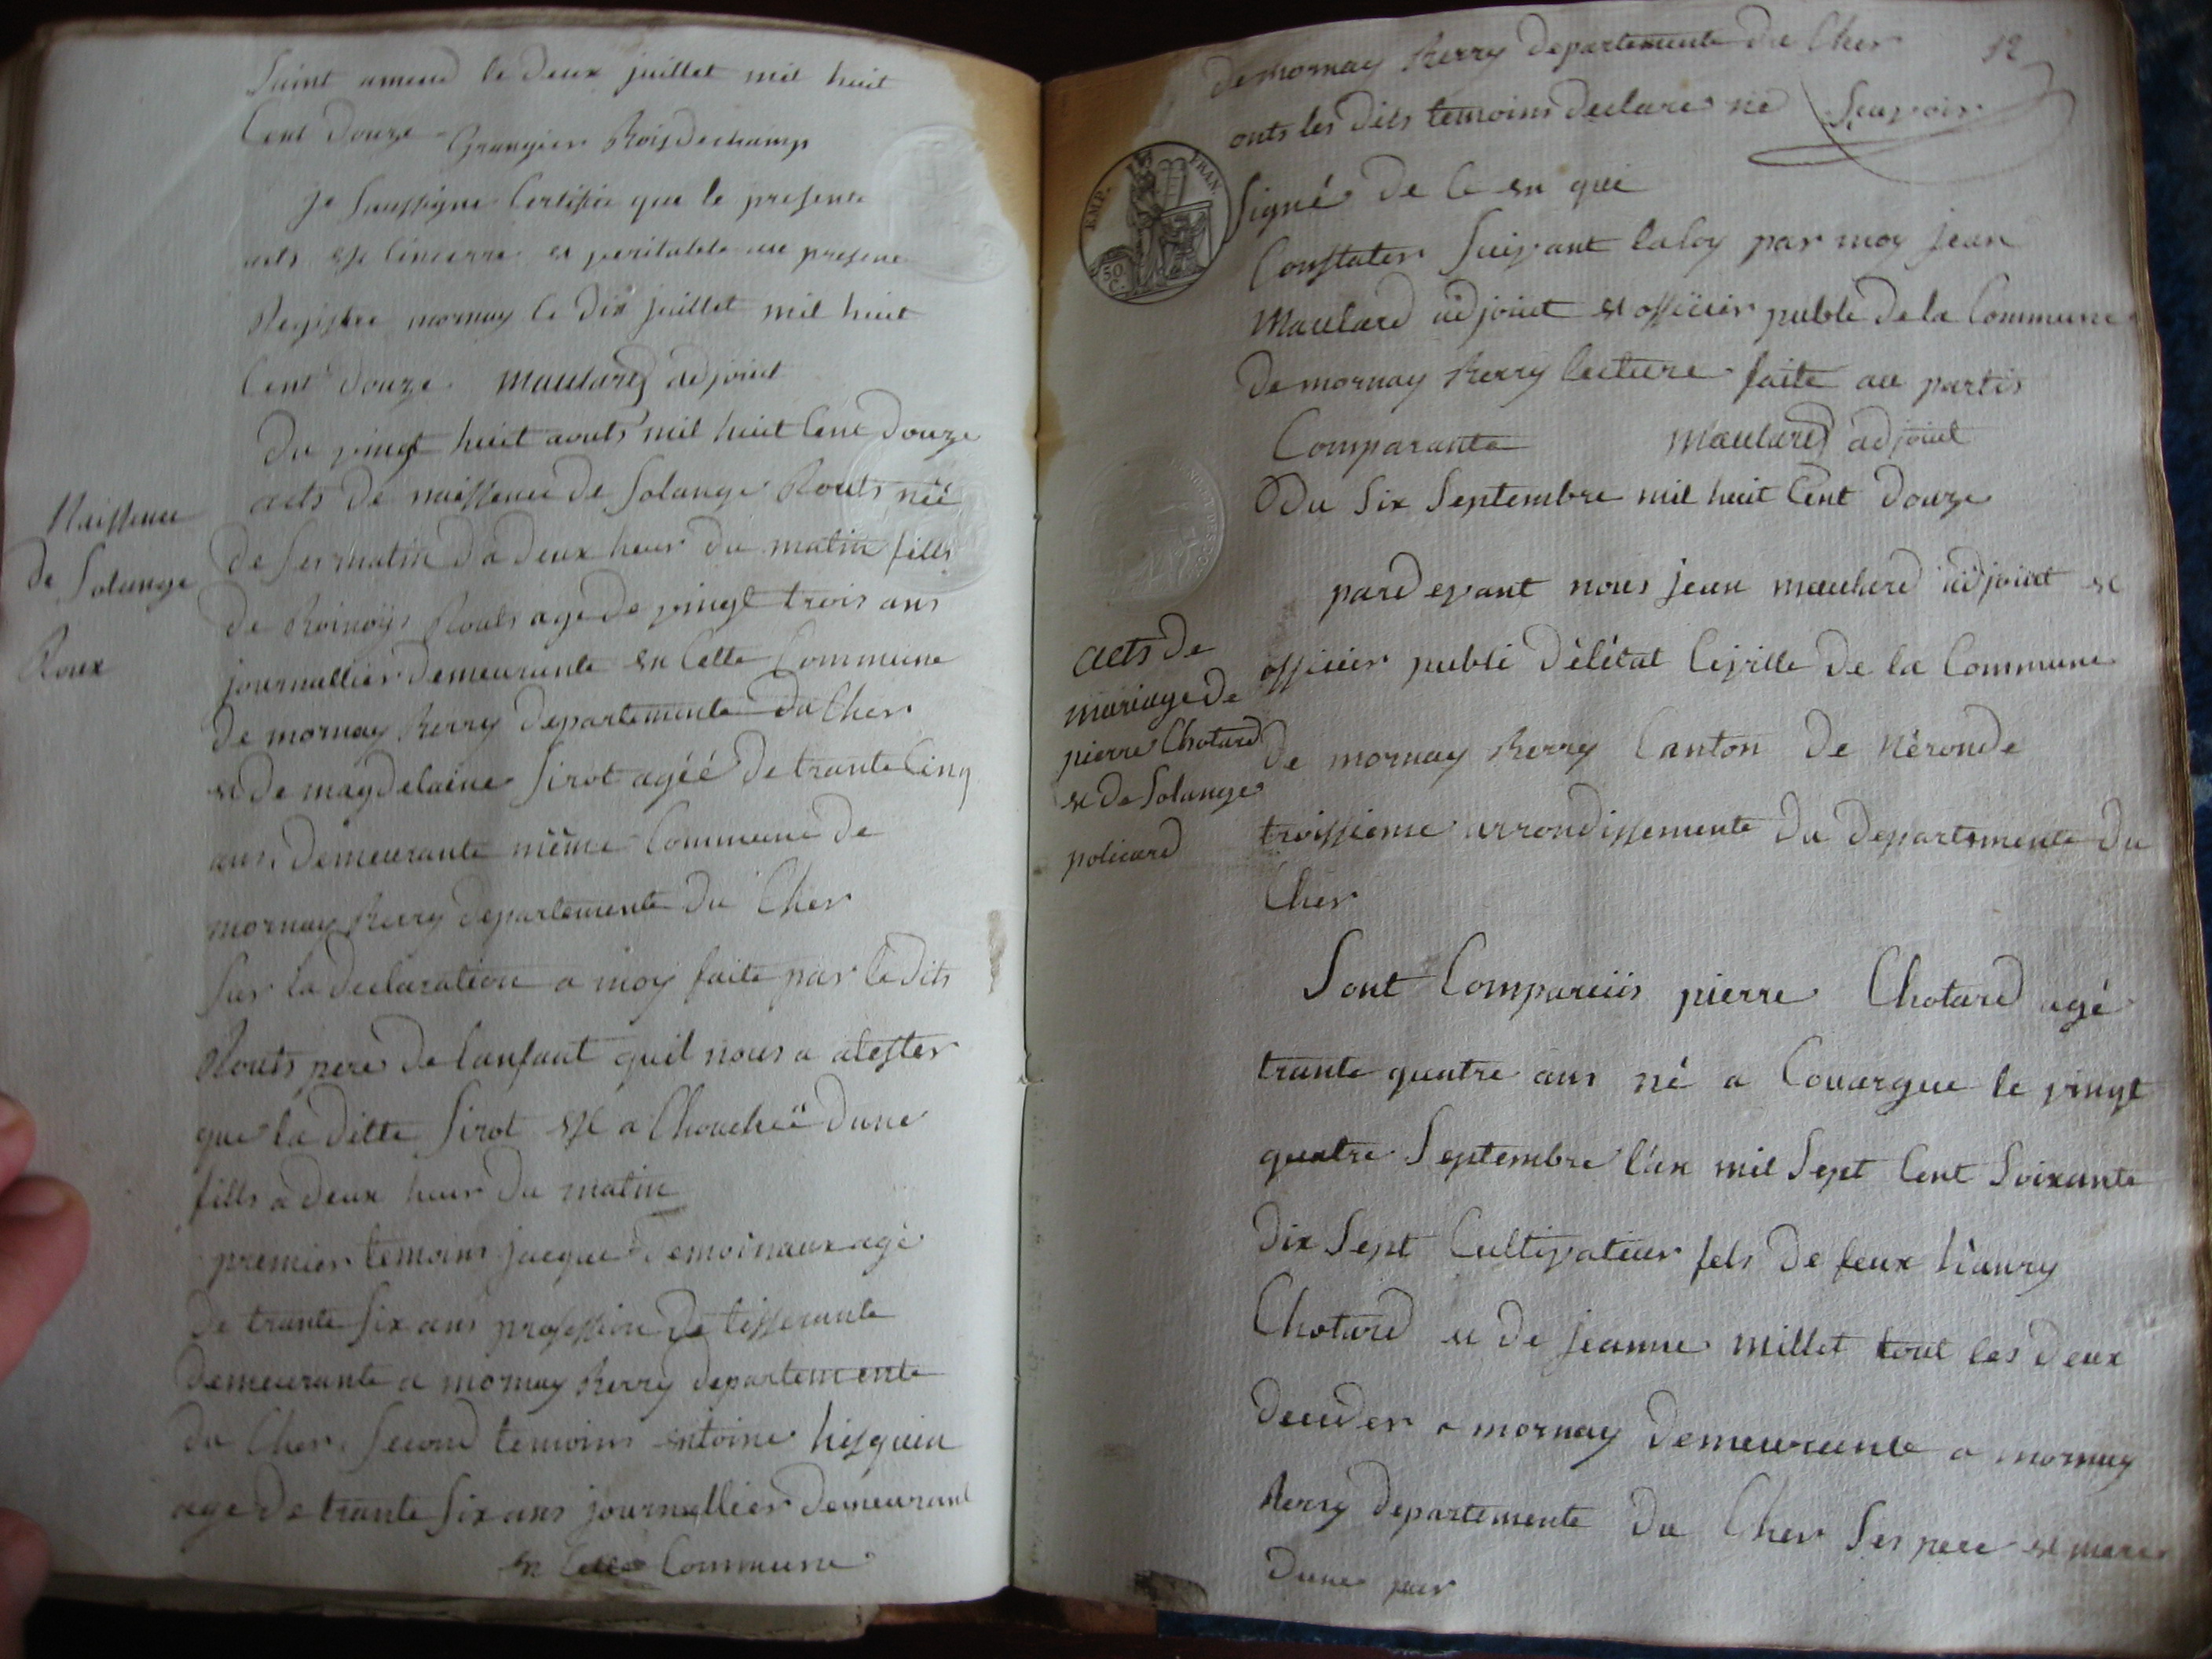 Saint amend le deux juillet mil huit
Cent douze Grangier Boisdechamp
je Soussigne Certifie que le presente
acts est Cincerre et veritable au presene
Registre mornay le dix juillet mil huit
Cent douze. Maulard adjoint
du vingt huit aouts mil huit Cent douze
acts de naissence de Solange Routs néé
de ser matin d a deux heur du matin fills
de Routs age de vingt trois ans
journallier demeurante en Cette Commune
de mornay Berry departemente du Cher
et de magdelaine Sirot agéé de trante Cinq
ans, demeurante même Commune de
mornay Berry departemente du Cher
Sur la declaration a moy faite par le dits
Routs pere de lanfant quil nous a atester
que la ditte Sirot est a Chouchéë dune
fills a deux heur du matin
premier temoins jacque demoinaux agé
de trante Six ans profession de tisserante
demeurante a mornay Berry departemente
du Cher. Second temoins entoine
age de trante Six ans journallier demeurant
en Cette Commune
Naissence
de Solange
Roux
12
de mornay Berry departemente du Cher
onts les dits temoins declare ne Scavoir
EMP. FRAN.
50 C.
Signé de Ce en que
Constater Suivant la loy par moy jean
Maulard adjoint et officier publi de la Commune
de mornay Berry lecture faite au partis
Comparante Maulard adjoint
Du Six Septembre mil huit Cent douze
pard evant nous jean maulard adjoint et
officier publi délétat Civille de la Commune
de mornay Berry Canton de Néronde
troissieme arrondissemente du departemente du
Cher
acts de
mariage de
pierre Chotard
et de Solange
policard
Sont Comparuiis pierre Chotard agé
trante quatre ans né a Couargue le vingt
quatre Septembre l'an mil Sept Cent Soixante
dix Sept Cultivateur fels de feux hanry
Chotard et de jeanne millet tout les deux
deceder a mornay demeurante a mornay
Berry departemente du Cher Ses pere et mere
dune par